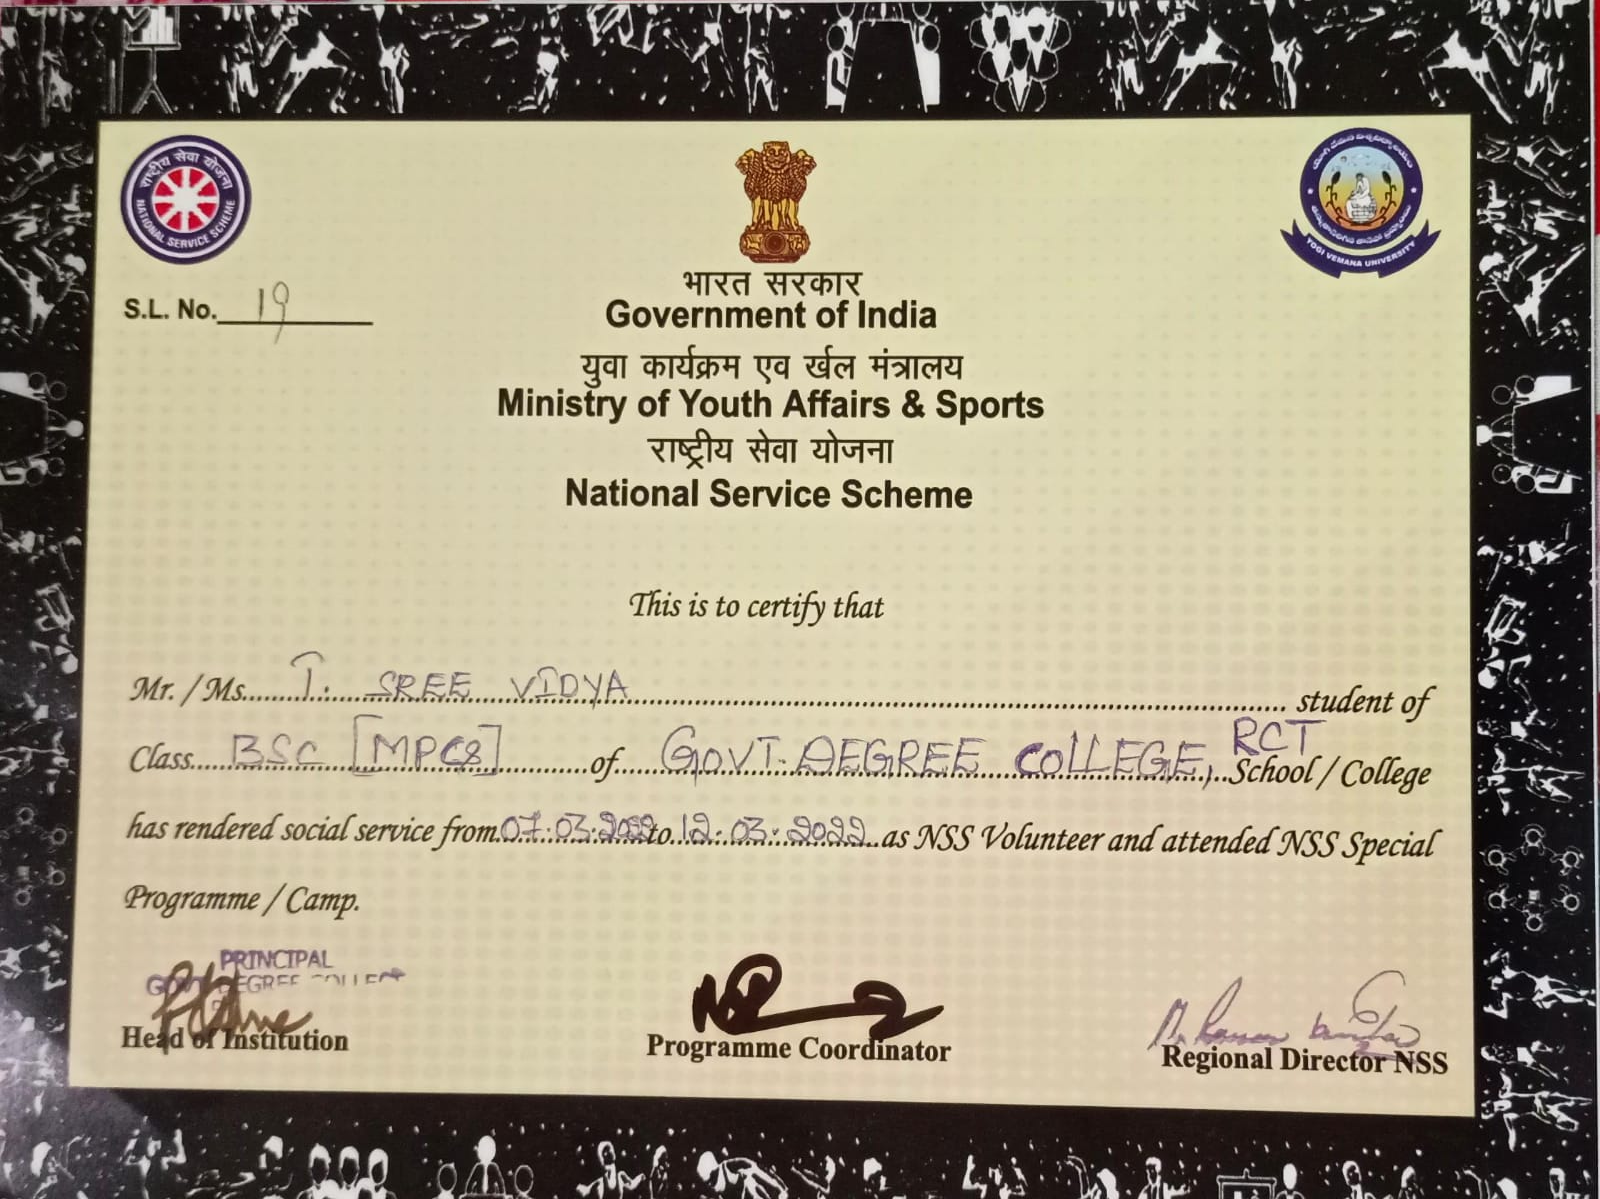 राष्ट्रीय सेवा योजना
NATIONAL SERVICE SCHEME
YOGI VEMANA UNIVERSITY
S.L. No. 19
भारत सरकार
Government of India
युवा कार्यक्रम एव र्खल मंत्रालय
Ministry of Youth Affairs & Sports
राष्ट्रीय सेवा योजना
National Service Scheme
This is to certify that
Mr. / Ms. T. SREE VIDYA student of
Class BSC [MPCS] of GOVT. DEGREE COLLEGE, RCT School / College
has rendered social service from 07.03.2022 to 12.03.2022 as NSS Volunteer and attended NSS Special
Programme / Camp.
PRINCIPAL
GOVT DEGREE COLLEGE
Head of Institution
Programme Coordinator
Regional Director NSS